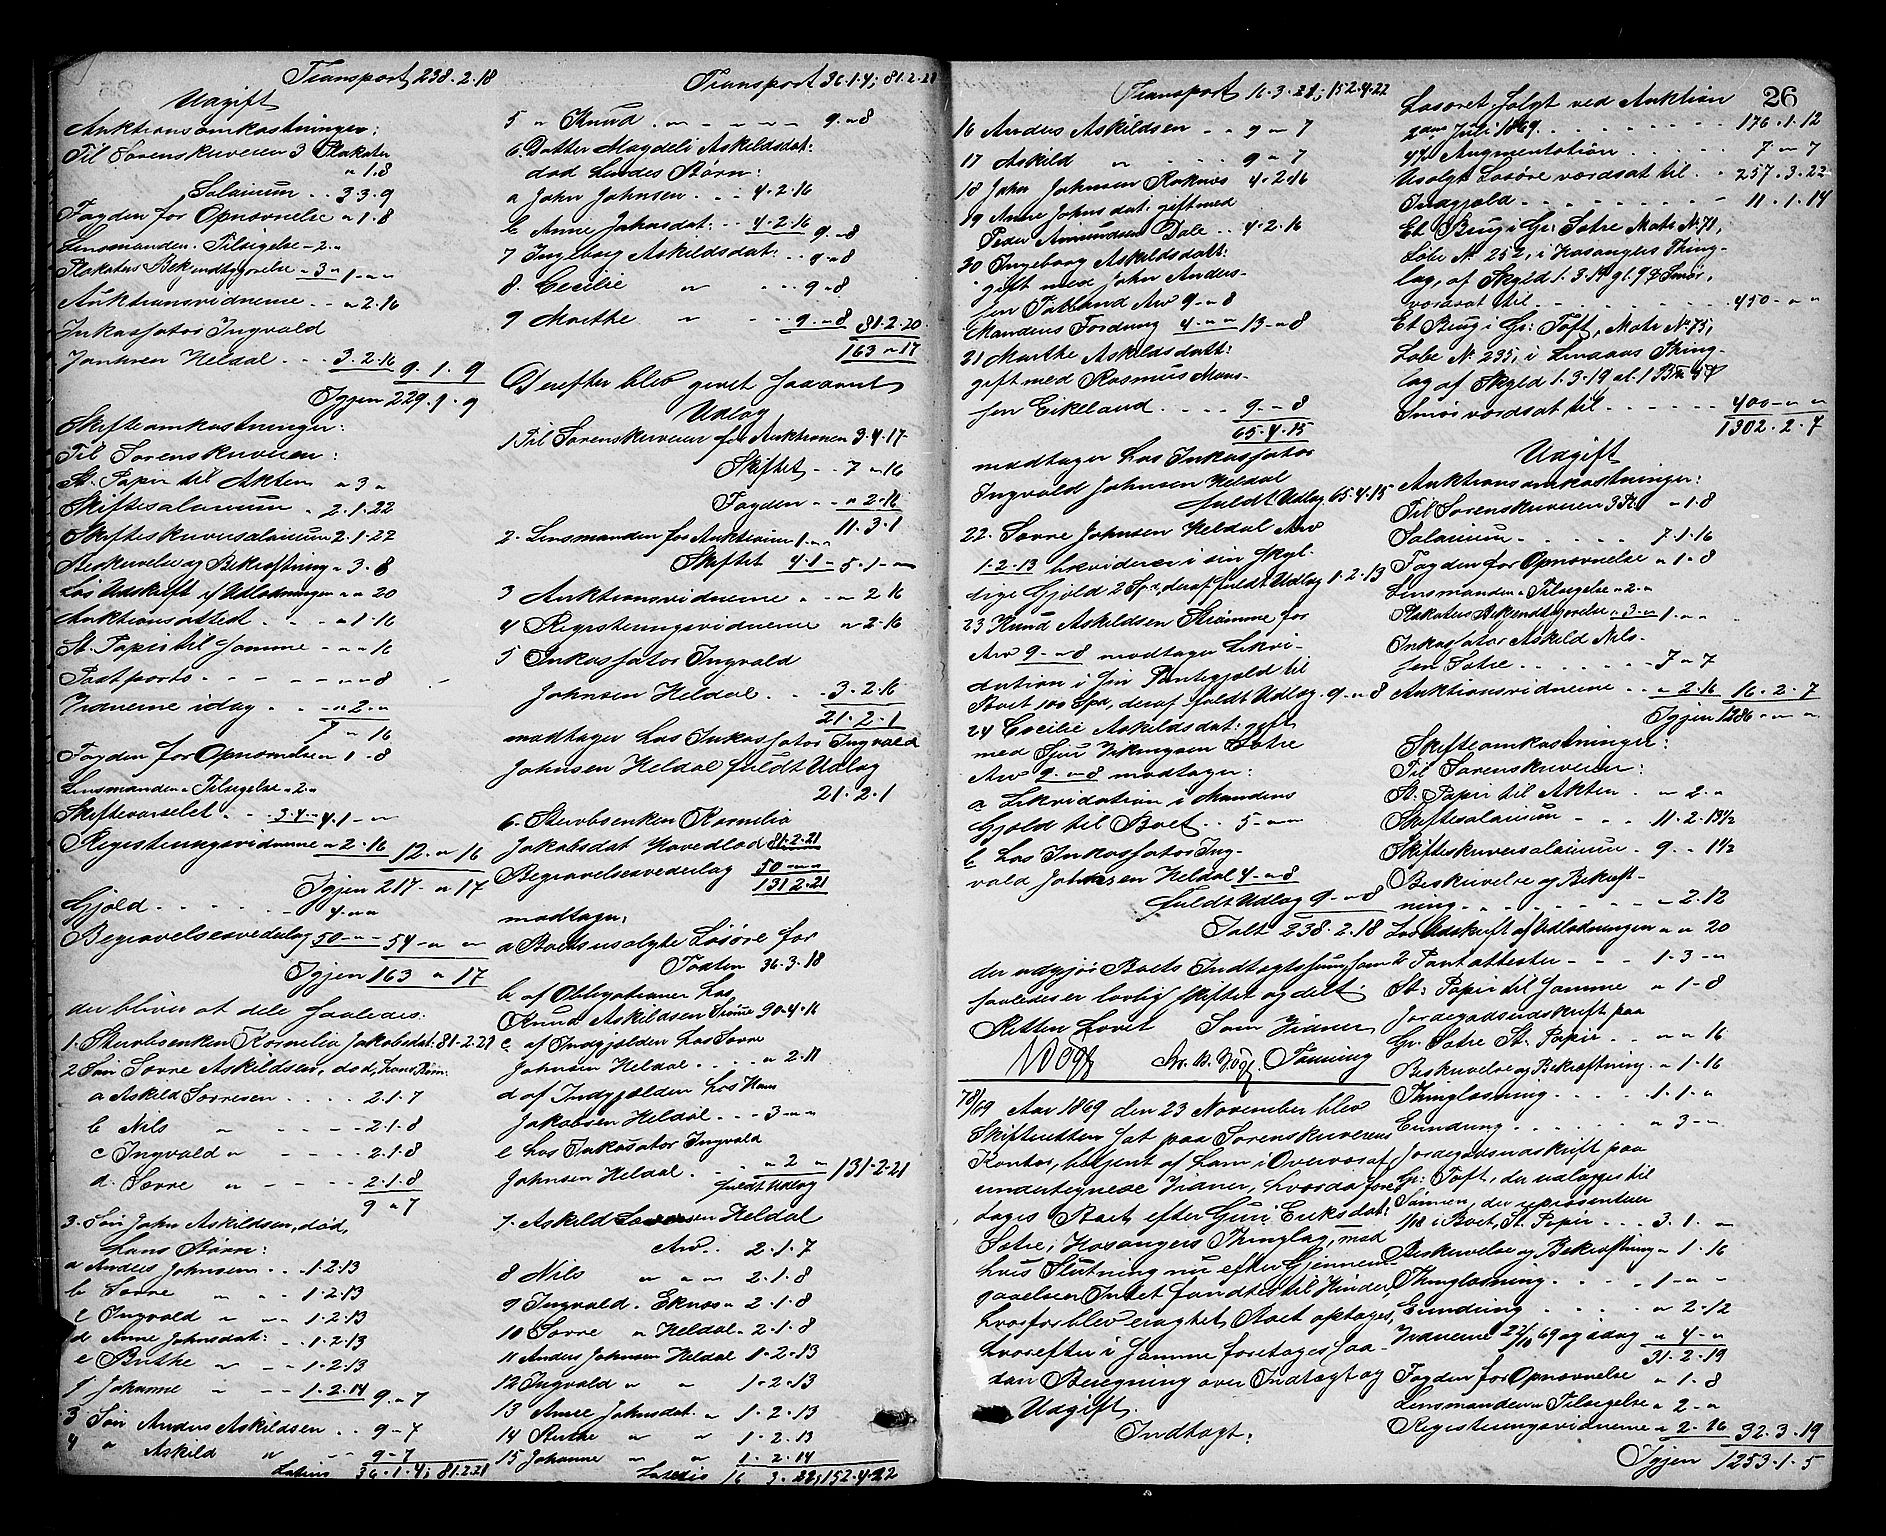 Transport 238.2.18
Udgift
Auktionsomkostninger:
Til Sorenskriveren 3 Plakater
" 1.8
Salarium .. 3.3.9
Fogden for Opnævnelse " 1.8
Lensmanden. Tilsigelse "2."
Plakaters Bekjendtgjørelse " 3 " 1 " "
Auktionsvidnerne .. " 2.16
Inkassator Ingvald
Johnsen Heldal ... 3.2.16 9.1.9
Igjen 229.1.9
Skifteomkostninger:
Til Sorenskriveren:
St. Papir til Akten " 3 "
Skiftesalarium " 2.1.22
Skifteskriversalarium 2.1.22
Beskrivelse og Bekræftning " 3.8
Lös Udskrift af Udlodningen " " 20
Auktionsattest . . . " 1.16
St. Papir til Samme - " " 16
Postporto - - - - - " " 8
Vidnerne idag . . " 2 "
7 " 16
Fogden for Opnævnelse " 1 - 8
Lensmanden. Tilsigelse "2."
Skiftevarselet . . 3.4 " 4.1 - "
Registreringsvidnerne " 2.16 12 " 16
Igjen 217 " 17
Gjæld . . . . . 4 " "
Begravelsesvederlag 50 " " 54 " "
Igjen 163 " 17
der bliver at dele saaledes:
1. Stervbsenken Kornelia Jakobsdat: 81.2.21
2 Søn Sjovre Askildsen, død, hans Børn:
a Askild Sjovresen . . . . 2.1.7
b Nils " - - - - 2.1.8
c Ingvald " - - - - 2.1.8
d. Sjovre " - - - 2.1.8
9 " 7
3. Søn John Askildsen, død,
hans Børn:
a Anders Johnsen . . . 1.2.13
b Sjovre " " . 1.2.13
c Ingvald " " - 1.2.13
d Anne Johnsdat: . . 1.2.13
e Brithe " - - 1.2.13
f Johanne " - - 1.2.14 9 " 7
3 Søn Anders Askildsen . . 9 - 7
4 " Askild " - - 9 - 7
Lateris 36.1.4; 81.2.21
Transport 36.1.4; 81.2.21
5 " Knud . " - - - " 9 " 8
6 Datter Magdeli Askildsdat:
død hendes Børn:
a John Johnsen . . . 4.2.16
b Anne Johnsdat: . . 4.2.16 9 " 8
7 Ingeborg Askildsdat: . . 9 " 8
8. Cecilie " . . . 9 " 8
9 Marthe " - . . 9 " 8 81.2.20
163 " 17
Derefter blev gjevet saadant
Udlæg
1. Til Sorenskriveren for Auktionen 3.4.17
Skiftet . . 7 " 16
Fogden . . " 2.16
11.3.1
2. Lensmanden for Auktionen 1 " "
Skiftet 4.1 - 5.1 - "
3 Auktionsvidnerne " - " 2 16
4 Registreringsvidnerne " 2.16
5 Inkassator Ingvald
Johnsen Heldal . . . 3.2.16
21.2.1
modtager hos Inkassator Ingvald
Johnsen Heldal fuldt Udlæg
21.2.1
6. Stervbsenken Kornelia
Jakobsdat Hovedlod 81.2.21
Begravelsesvederlag 50 " "
131 2.21
modtager:
a Boets usolgte Løsøre for
Taxten 36.3.18
b af Obligationer hos
Knud Askildsen Strømme 90.4.16
c. af Indgjælden hos Sjovre
Johnsen Heldal . . . " 2.11
d af Indgjælden hos Hans
Jakobsen Heldal . . . 3 " "
e hos Inkassator Ingvald
Johnsen Heldal . . . " 2 " 131.2.21
fuldt Udlæg
7. Askild Sjovresen Heldal
Arv . . 2.1.7
8 Nils " " " 2.1.8
9 Ingvald. Eknæs " 2.1.8
10 Sjovre " Heldal " 2.1.8
11 Anders Johnsen Heldal 1.2.13
12 Ingvald " " 1.2.13
13 Anne Johnsdat. " 1.2.13
14 Brithe " " 1.2.13
15 Johanne " " 1.2.14
Lateris 16 3.21; 152.4.22
Transport 16.3.21; 152.4.22
16 Anders Askildsen . . 9 " 7
17 Askild " . . . 9 " 7
18 John Johnsen Røknæs 4.2.16
19 Anne Johnsdat: gift med
Peder Amundsen Dale . . 4.2.16
20 Ingeborg Askildsdatt:
gift med John Anders-
sen Tatland Arv 9 " 8
Mandens Fordring 4 " " 13 " 8
21 Marthe Askildsdatt:
gift med Rasmus Mons-
sen Eikeland . . . . 9 " 8
65.4.15
modtager hos Inkassator
Ingvald Johnsen Heldal
fuldt Udlæg 65.4.15
22. Sjovre Johnsen Heldal Arv
1.2.13 likviderer i sin skyl-
dige Gjæld 2 Spd, deraf fuldt Udlæg 1.2.13
23 Knud Askildsen Strømme for
Arv 9 " 8 modtager Likvi-
dation i sin Pantegjæld til
Boet 100 Spd, deraf fuldt Udlæg 9 " 8
24 Cecilie Askildsdat: gift
med Sjur Vikingsen Sætre
Arv 9 " 8 modtager:
a Likvidation i Mandens
Gjæld til Boet . . 5 " "
b hos Inkassator Ing-
vald Johnsen Heldal 4 " 8
fuldt Udlæg 9 " 8
Ialt 238.2.18
der udgjør Boets Indtægtssum som
saaledes er lovlig skiftet og delt.
Retten hævet Som Vidner
78/69 Aar 1869 den 23 November blev
Skifteretten sat paa Sorenskriverens
Kontor, betjent af ham i Overvær af
undertegnede Vidner, hvorda fore-
toges Boet efter Guri Eriksdat:
Sætre, i Hosangers Thinglag, med
hvis Slutning nu efter Gjennem-
gaaelsen Intet fandtes til Hinder,
hvorfor blev eragtet Boet optages,
hvorefter i Samme foretoges saa-
dan Beregning over Indtægt og
Udgift.
Indtægt:
26
Løsøret solgt ved Auktion
2den Juli 1869 . . . . . . 176.1.12
4% Augmentation . . . . 7 " 7
Usolgt Løsøre værdsat til . . 257.3.22
Indgjæld - - - - - - - - 11.1.14
Et Brug i Gr: Sætre Matr No 71,
Løbe No 252, i Hosangers Thing-
lag, af Skyld 1.3.14
værdsat til . . . . . . . . 450 " "
Et Brug i Gr: Toft, Matr No 75,
Løbe No 235, i Lindaas Thing-
lag af Skyld 1.3.19
Smør værdsat til . . . . . . 400 " "
1302.2.7
Udgift
Auktionsomkostninger:
Til Sorenskriveren 3 Pl. " 1.8
Salarium . . . . . 7.1.16
Fogden for Opnævnelse " 1.8
Lensmanden " Tilsigelse " 2 "
Plakaters Bekjendtgjørelse " 3 " 1 " "
Inkassator Askild Nils-
sen Sætre . . . . . . 7 " 7
Auktionsvidnerne . . " 2.16 16.2.7
Igjen 1286 " "
Skifteomkostninger:
Til Sorenskriveren:
St. Papir til Akten . " 2 "
Skiftesalarium . . . 11.2.13½
Skifteskriversalarium . 9 . . 1½
Beskrivelse og Bekræft-
ning . . . . . . . . . " 2.12
Lös Udskrift af Udlodningen " " 20
2 Pantattester - - - 1.3 "
St: Papir til Samme " 1.8
Jordegodsudskrift paa
Gr: Sætre St. Papir . . " " 16
Beskrivelse og Bekræftning . " 1.16
Thinglæsning . . . . 1.1 "
Grundung . . . . . . " 3 "
Jordegodsudskrift paa
Gr: Toft, der udlægges til
Sønnen, der repræsenterer
i Boet, St. Papir . . . 3.1. "
Beskrivelse og Bekræftning " 1.16
Thinglæsning . . . . 1 " "
Grundung . . . . . " 2.12
Vidnerne 22/10 69 og idag " 4 "
31.2.19
Fogden for Opnævnelse " 1.8
Lensmanden " Tilsigelse " 2 "
Registreringsvidnerne " 2.16 32.3.19
Igjen 1253.1.5